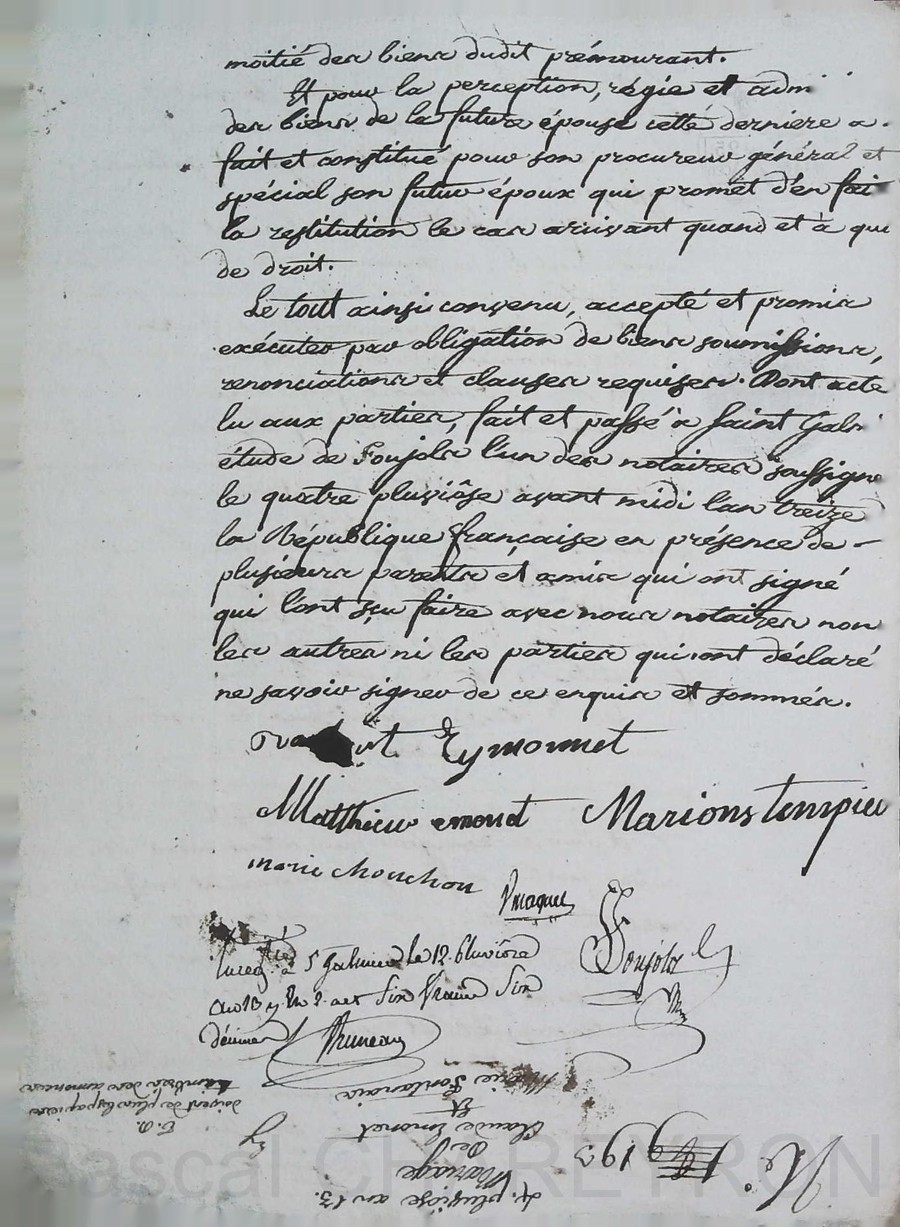 moitié des biens dudit prémourant.
Et pour la perception, régie et adm
des biens de la future épouse cette derniere a
fait et constitué pour son procureur général et
spécial son futur époux qui promet d'en fai
la restitution le cas arrivant quand et à qui
de droit.
Le tout ainsi convenu, accepté et promis
exécuter par obligation de biens soumissions,
renonciations et clauses requises. Dont acte
lu aux parties, fait et passé à Saint Galm
étude de Foujols l'un des notaires soussigné
le quatre pluviôse avant midi l'an treize
la République française en présence de
plusieurs parents et amis qui ont signé
qui l'ont sçu faire avec nous notaires non
les autres ni les parties qui ont déclaré
ne savoir signer de ce enquis et sommés.
Eymonnet
Matthieu emonet Marions tempier
marie chouchou
Foujols
à St Galmier le 12 Pluviôse
an 13
Bruneau
N.° 193
4. pluviose an 13.
Mariage
De
Claude Emonet
Et
Marie Fontanais
Pascal CHAREYRON